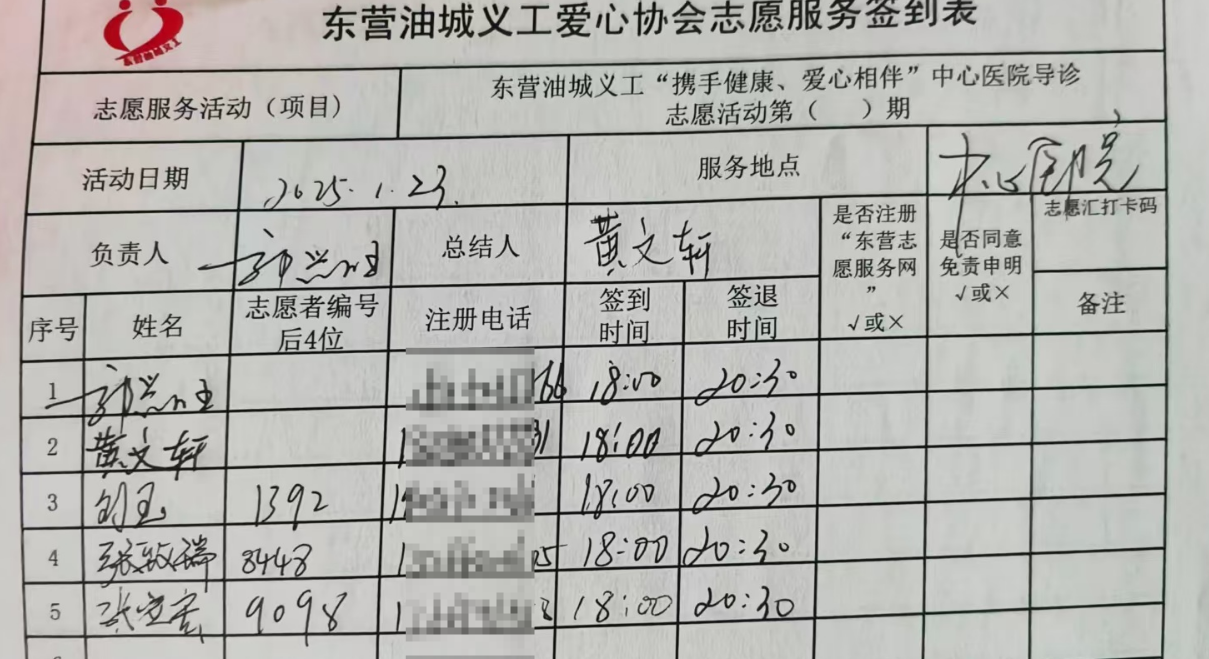 东营油城义工爱心协会志愿服务签到表
东营油城义工
志愿服务活动（项目）
东营油城义工“携手健康、爱心相伴”中心医院导诊
志愿活动第（ ）期
活动日期
2025.1.23.
服务地点
中心医院
负责人
总结人
黄文轩
是否注册
“东营志
愿服务网
”
√或×
是否同意
免责申明
√或×
志愿汇打卡码
备注
序号
姓名
志愿者编号
后4位
注册电话
签到
时间
签退
时间
1 66 18:00 20:30
2 黄文轩 1 31 18:00 20:30
3 刘玉 1392 1 18:00 20:30
4 张敏瑞 8448 1 05 18:00 20:30
5 9098 1 18:00 20:30